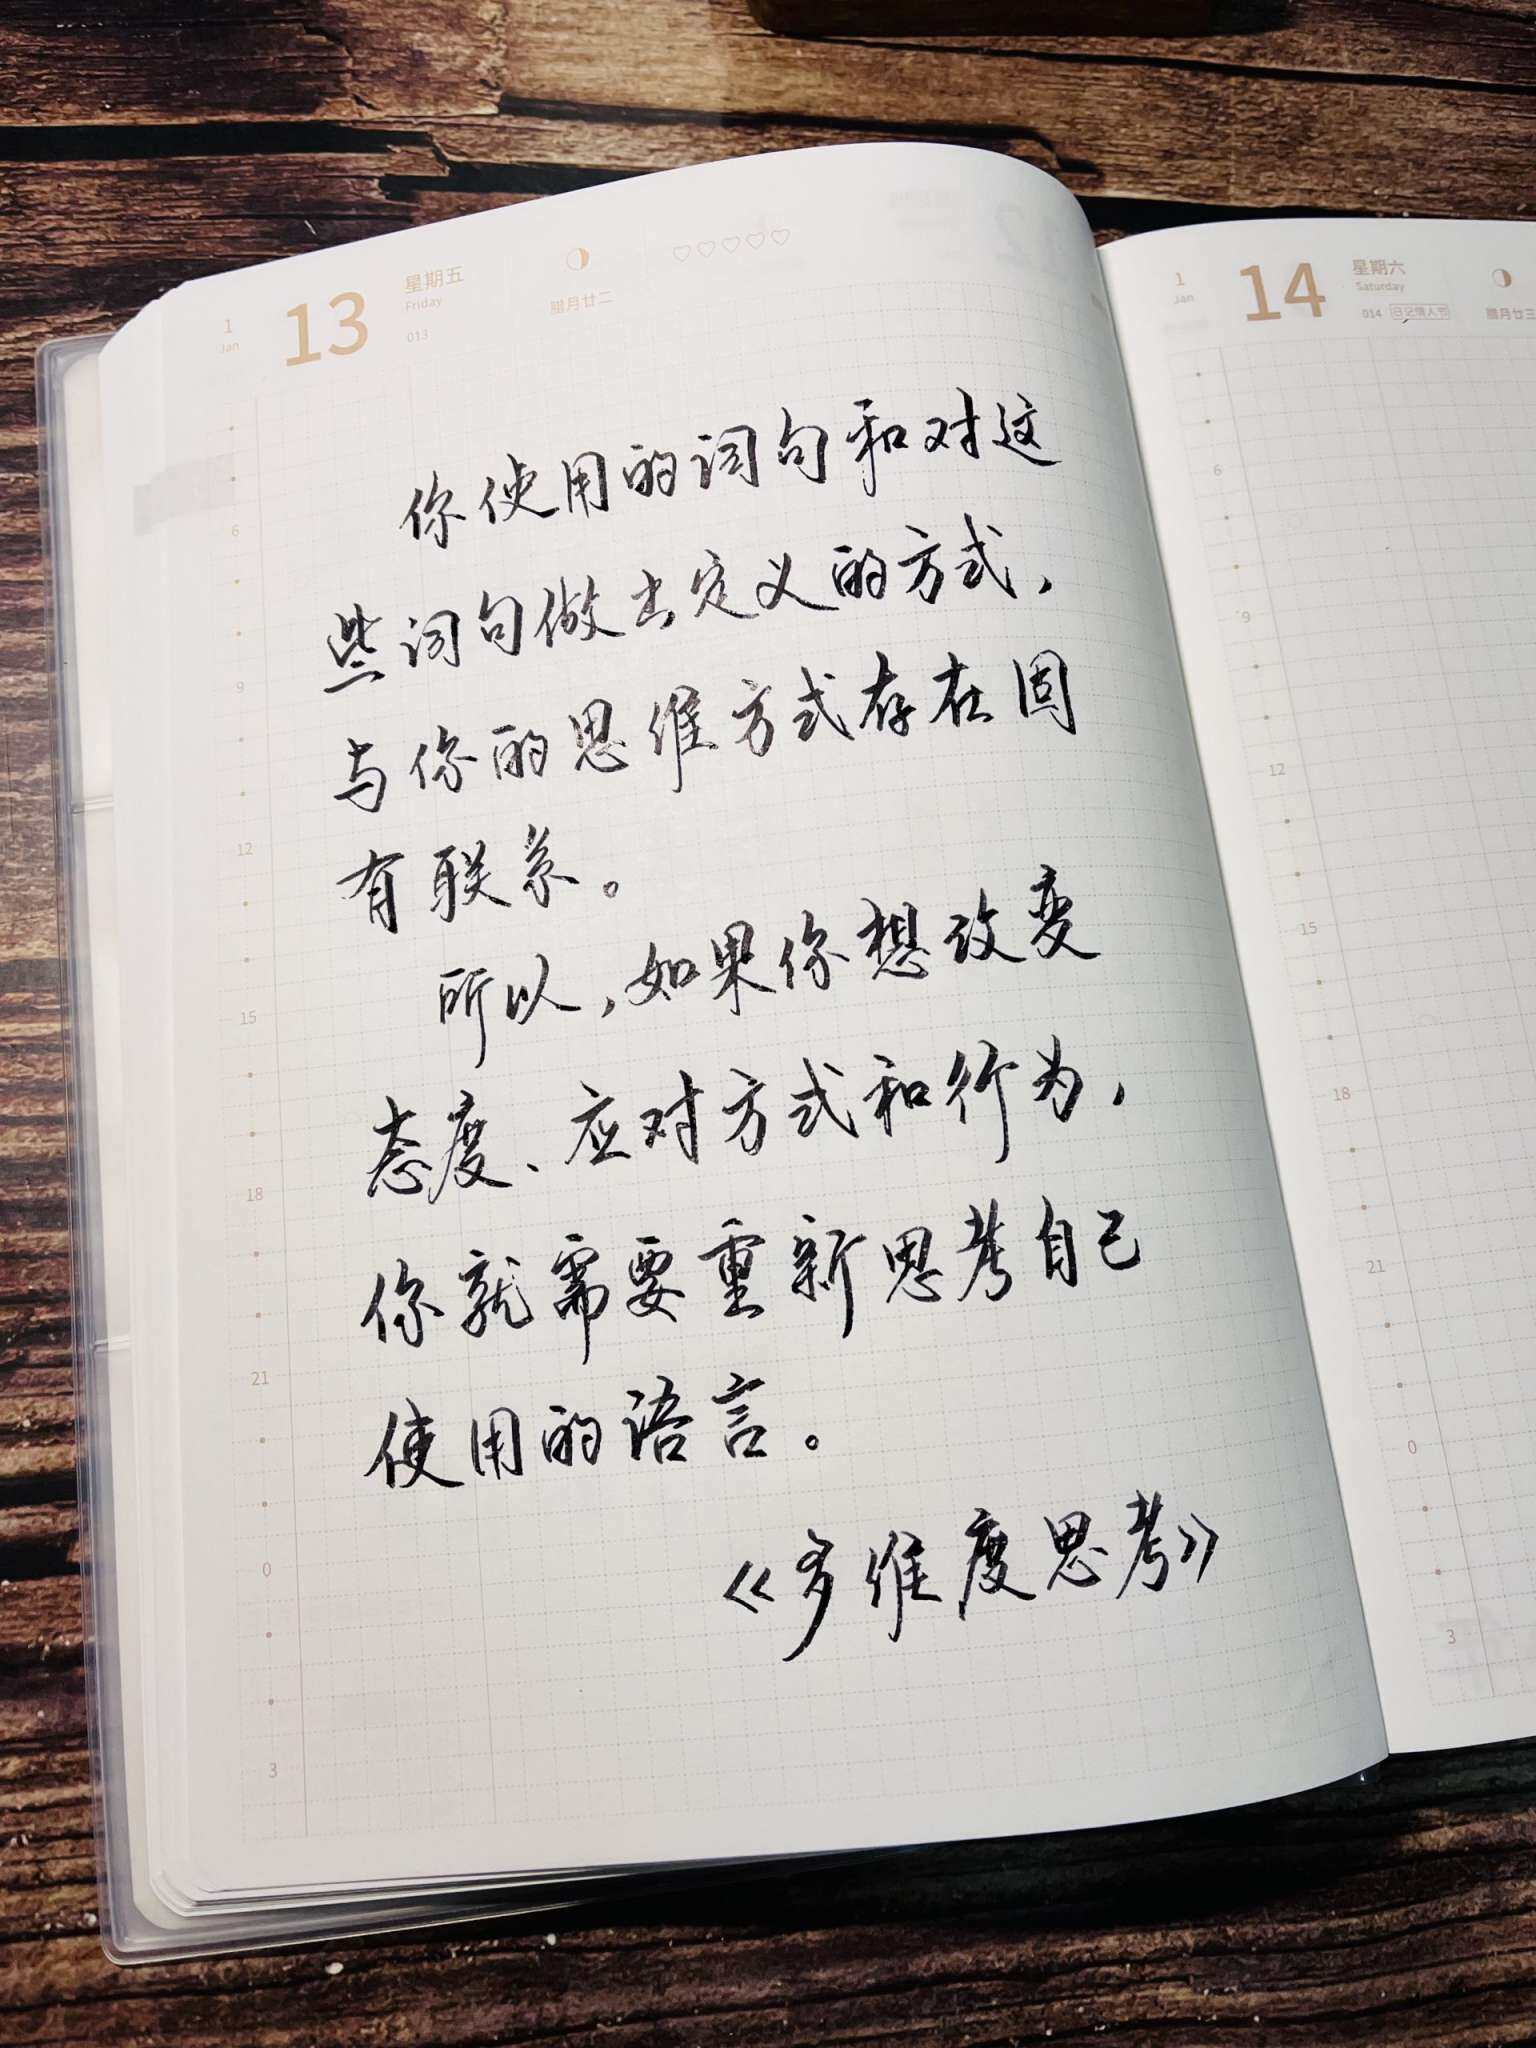 1
Jan
13
星期五
Friday
013
腊月廿二
你使用的词句和对这
些词句做出定义的方式,
与你的思维方式存在固
有联系。
所以,如果你想改变
态度、应对方式和行为,
你就需要重新思考自己
使用的语言。
《多维度思考》
6
9
12
15
18
21
0
3
1
Jan
14
星期六
Saturday
014
日记情人节
腊月廿三
6
9
12
15
18
21
0
3